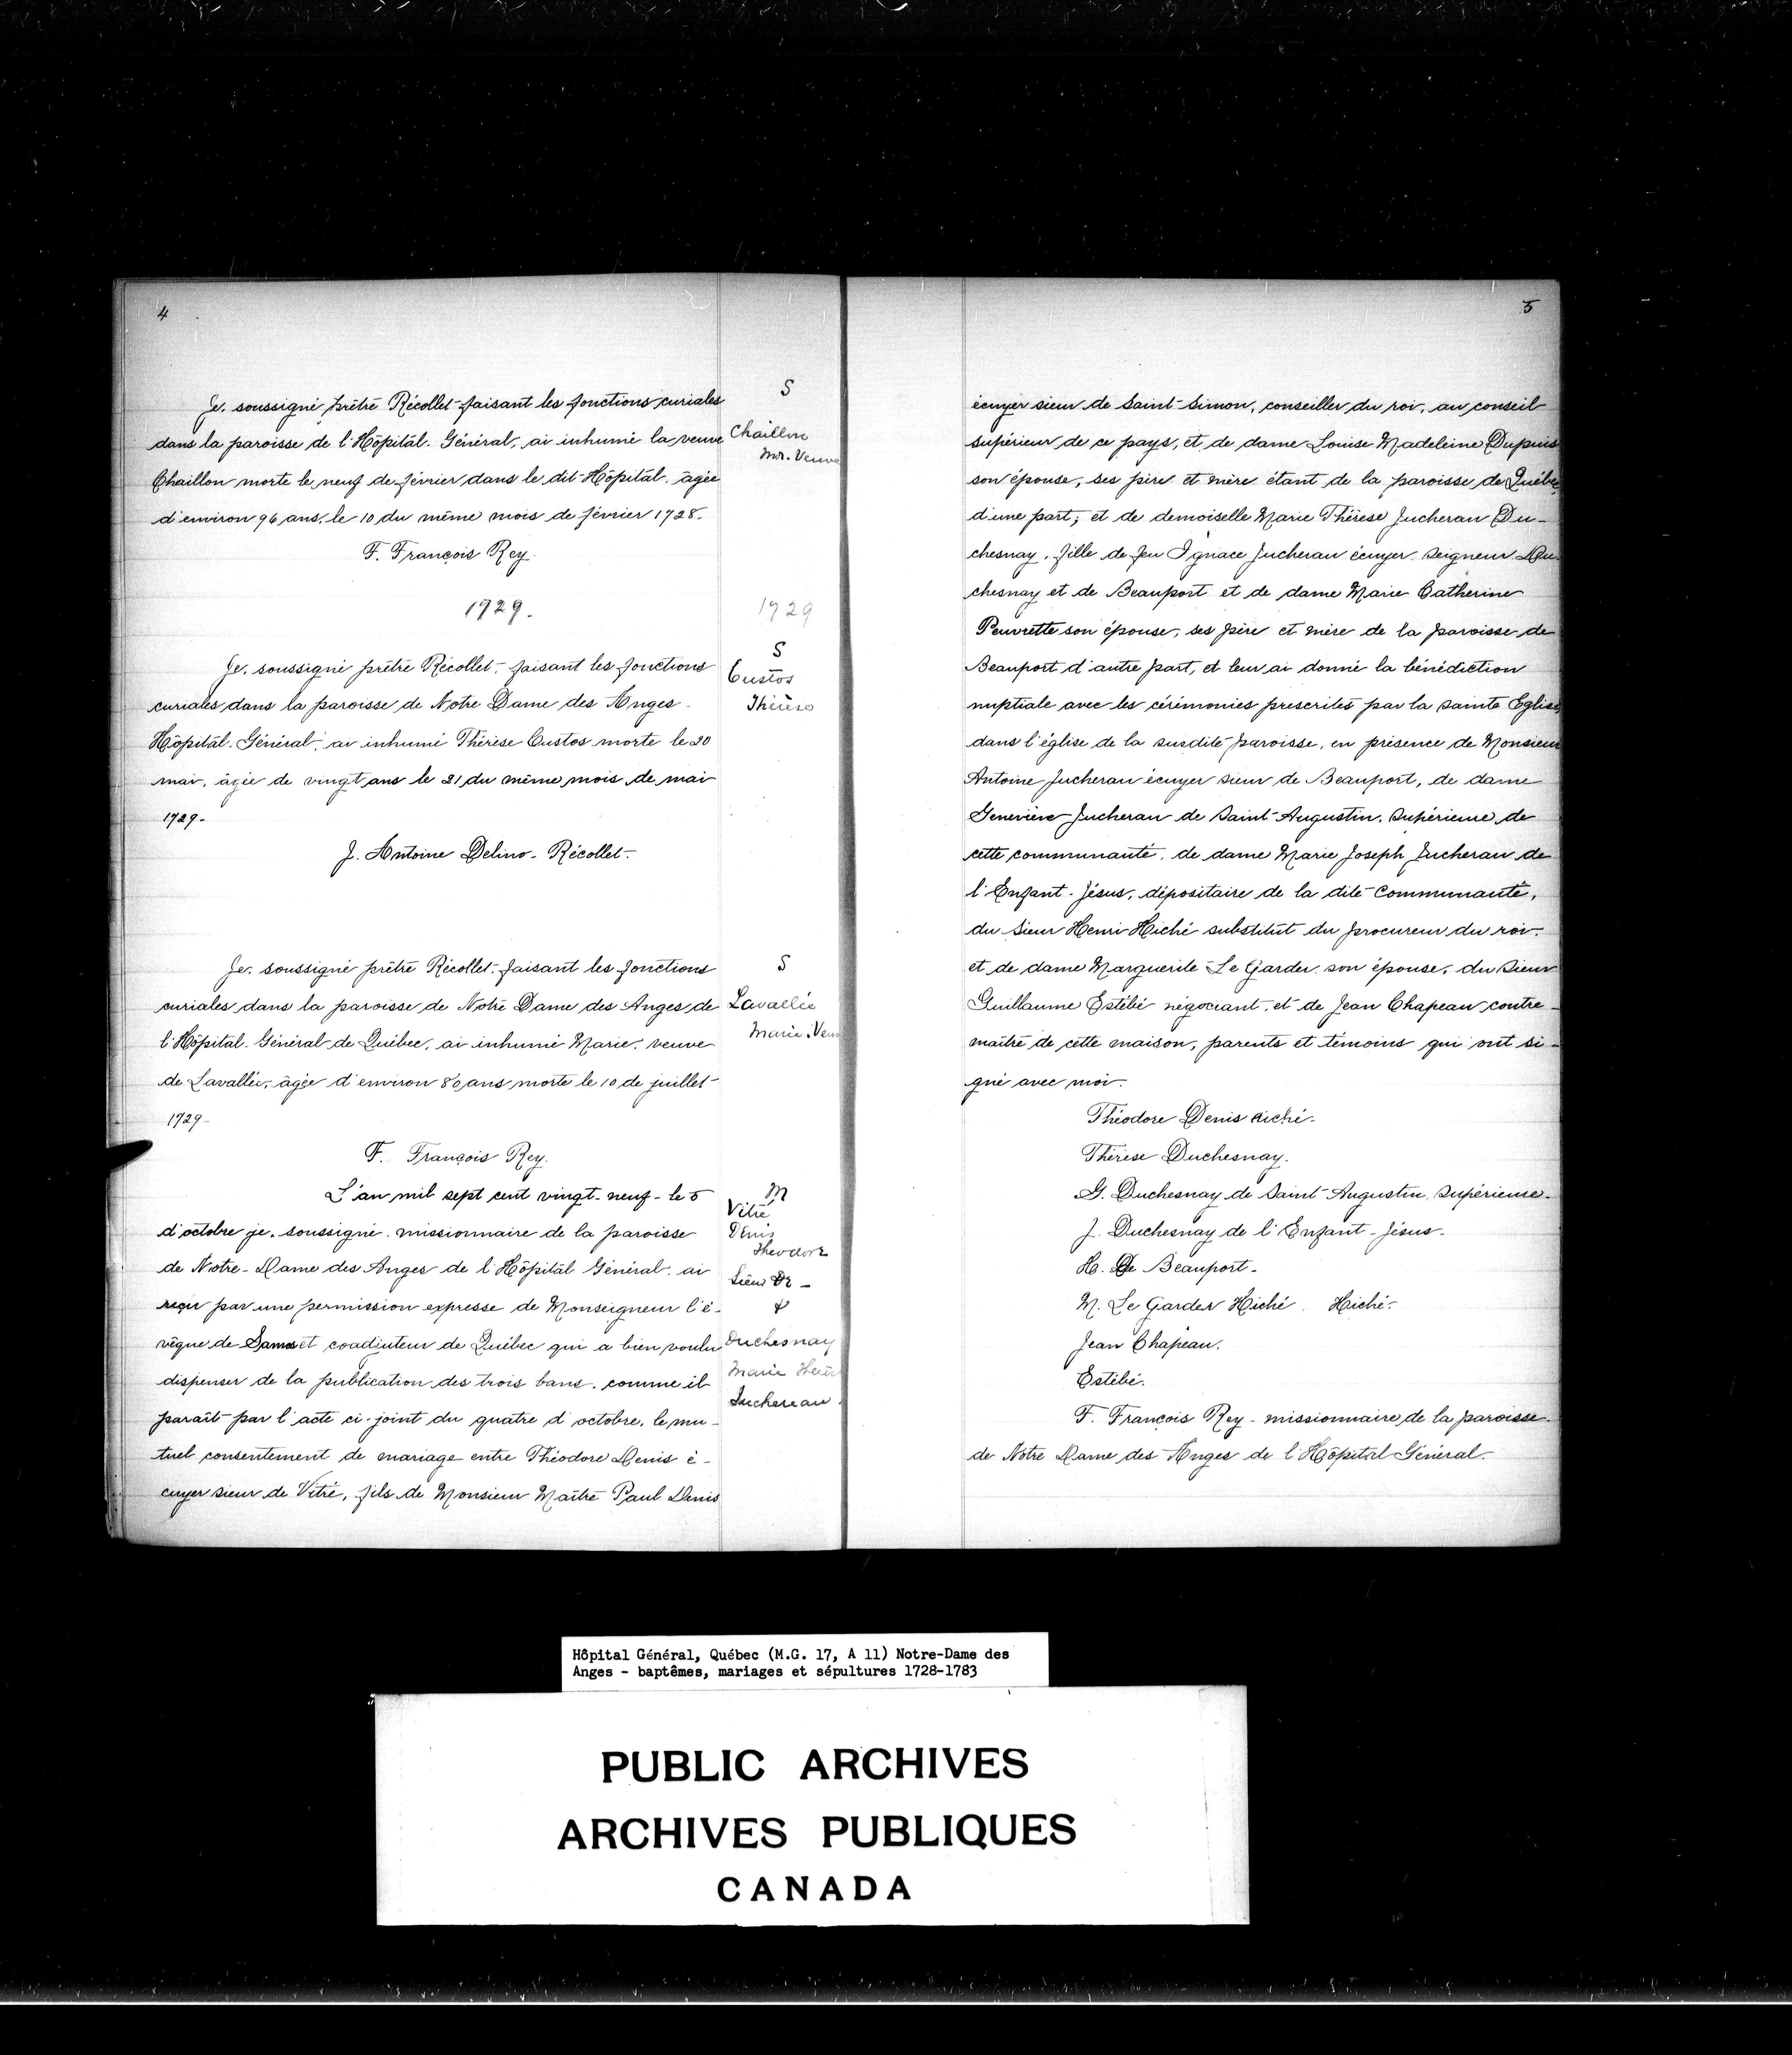 4
Je, soussigné prêtre Récollet faisant les fonctions curiales
dans la paroisse de l'Hôpital-Général, ai inhumé la veuve
Chaillon morte le neuf de février dans le dit Hôpital, âgée
d'environ 96 ans, le 10 du même mois de février 1728.
F. François Rey.
S
Chaillon
Mr. Veuve
1729.
1729
Je, soussigné prêtre Récollet, faisant les fonctions
curiales dans la paroisse de Notre Dame des Anges
Hôpital-Général, ai inhumé Thérèse Custos morte le 20
mai, âgée de vingt ans le 21 du même mois de mai
1729.
J. Antoine Delino - Récollet.
S
Custos
Thérèse
Je, soussigné prêtre Récollet, faisant les fonctions
curiales dans la paroisse de Notre Dame des Anges de
l'Hôpital-Général de Québec, ai inhumé Marie, veuve
de Lavallée, âgée d'environ 80 ans morte le 10 de juillet
1729.
F. François Rey.
S
Lavallée
Marie Veu
L'an mil sept cent vingt-neuf - le 5
d'octobre je, soussigné, missionnaire de la paroisse
de Notre-Dame des Anges de l'Hôpital Général, ai
reçu par une permission expresse de Monseigneur l'é-
vêque de Samos et coadjuteur de Québec qui a bien voulu
dispenser de la publication des trois bans, comme il
paraît par l'acte ci-joint du quatre d'octobre, le mu-
tuel consentement de mariage entre Théodore Denis é-
cuyer sieur de Vitré, fils de Monsieur Maître Paul Denis
M
Vitré
Denis
Theodore
Sieur De -
&
Duchesnay
Marie Thérè
Juchereau
5
écuyer sieur de Saint-Simon, conseiller du roi, au conseil
supérieur de ce pays, et de dame Louise Madeleine Dupuis
son épouse, ses père et mère étant de la paroisse de Québec
d'une part; et de demoiselle Marie Thérèse Jucherau Du-
chesnay, fille de feu Ignace Jucherau écuyer, seigneur Du-
chesnay et de Beauport et de dame Marie Catherine
Peuvrette son épouse, ses père et mère de la paroisse de
Beauport d'autre part, et leur ai donné la bénédiction
nuptiale avec les cérémonies prescrites par la sainte Eglise,
dans l'église de la susdite paroisse, en présence de Monsieur
Antoine Jucherau écuyer sieur de Beauport, de dame
Geneviève Jucherau de Saint-Augustin, Supérieure de
cette communauté, de dame Marie Joseph Jucherau de
l'Enfant-Jésus, dépositaire de la dite Communauté,
du Sieur Henri Hiché substitut du procureur du roi,
et de dame Marguerite Le Garder, son épouse, du Sieur
Guillaume Estébé négociant, et de Jean Chapeau contre-
maître de cette maison, parents et témoins qui ont si-
gné avec moi.
Théodore Denis Riché.
Thérèse Duchesnay.
G. Duchesnay de Saint-Augustin, Supérieure.
J. Duchesnay de l'Enfant-Jésus.
H. De Beauport.
M. Le Garder Hiché. Hiché.
Jean Chapeau.
Estébé.
F. François Rey - missionnaire de la paroisse
de Notre Dame des Anges de l'Hôpital Général.
Hôpital Général, Québec (M.G. 17, A 11) Notre-Dame des
Anges - baptêmes, mariages et sépultures 1728-1783
PUBLIC ARCHIVES
ARCHIVES PUBLIQUES
CANADA